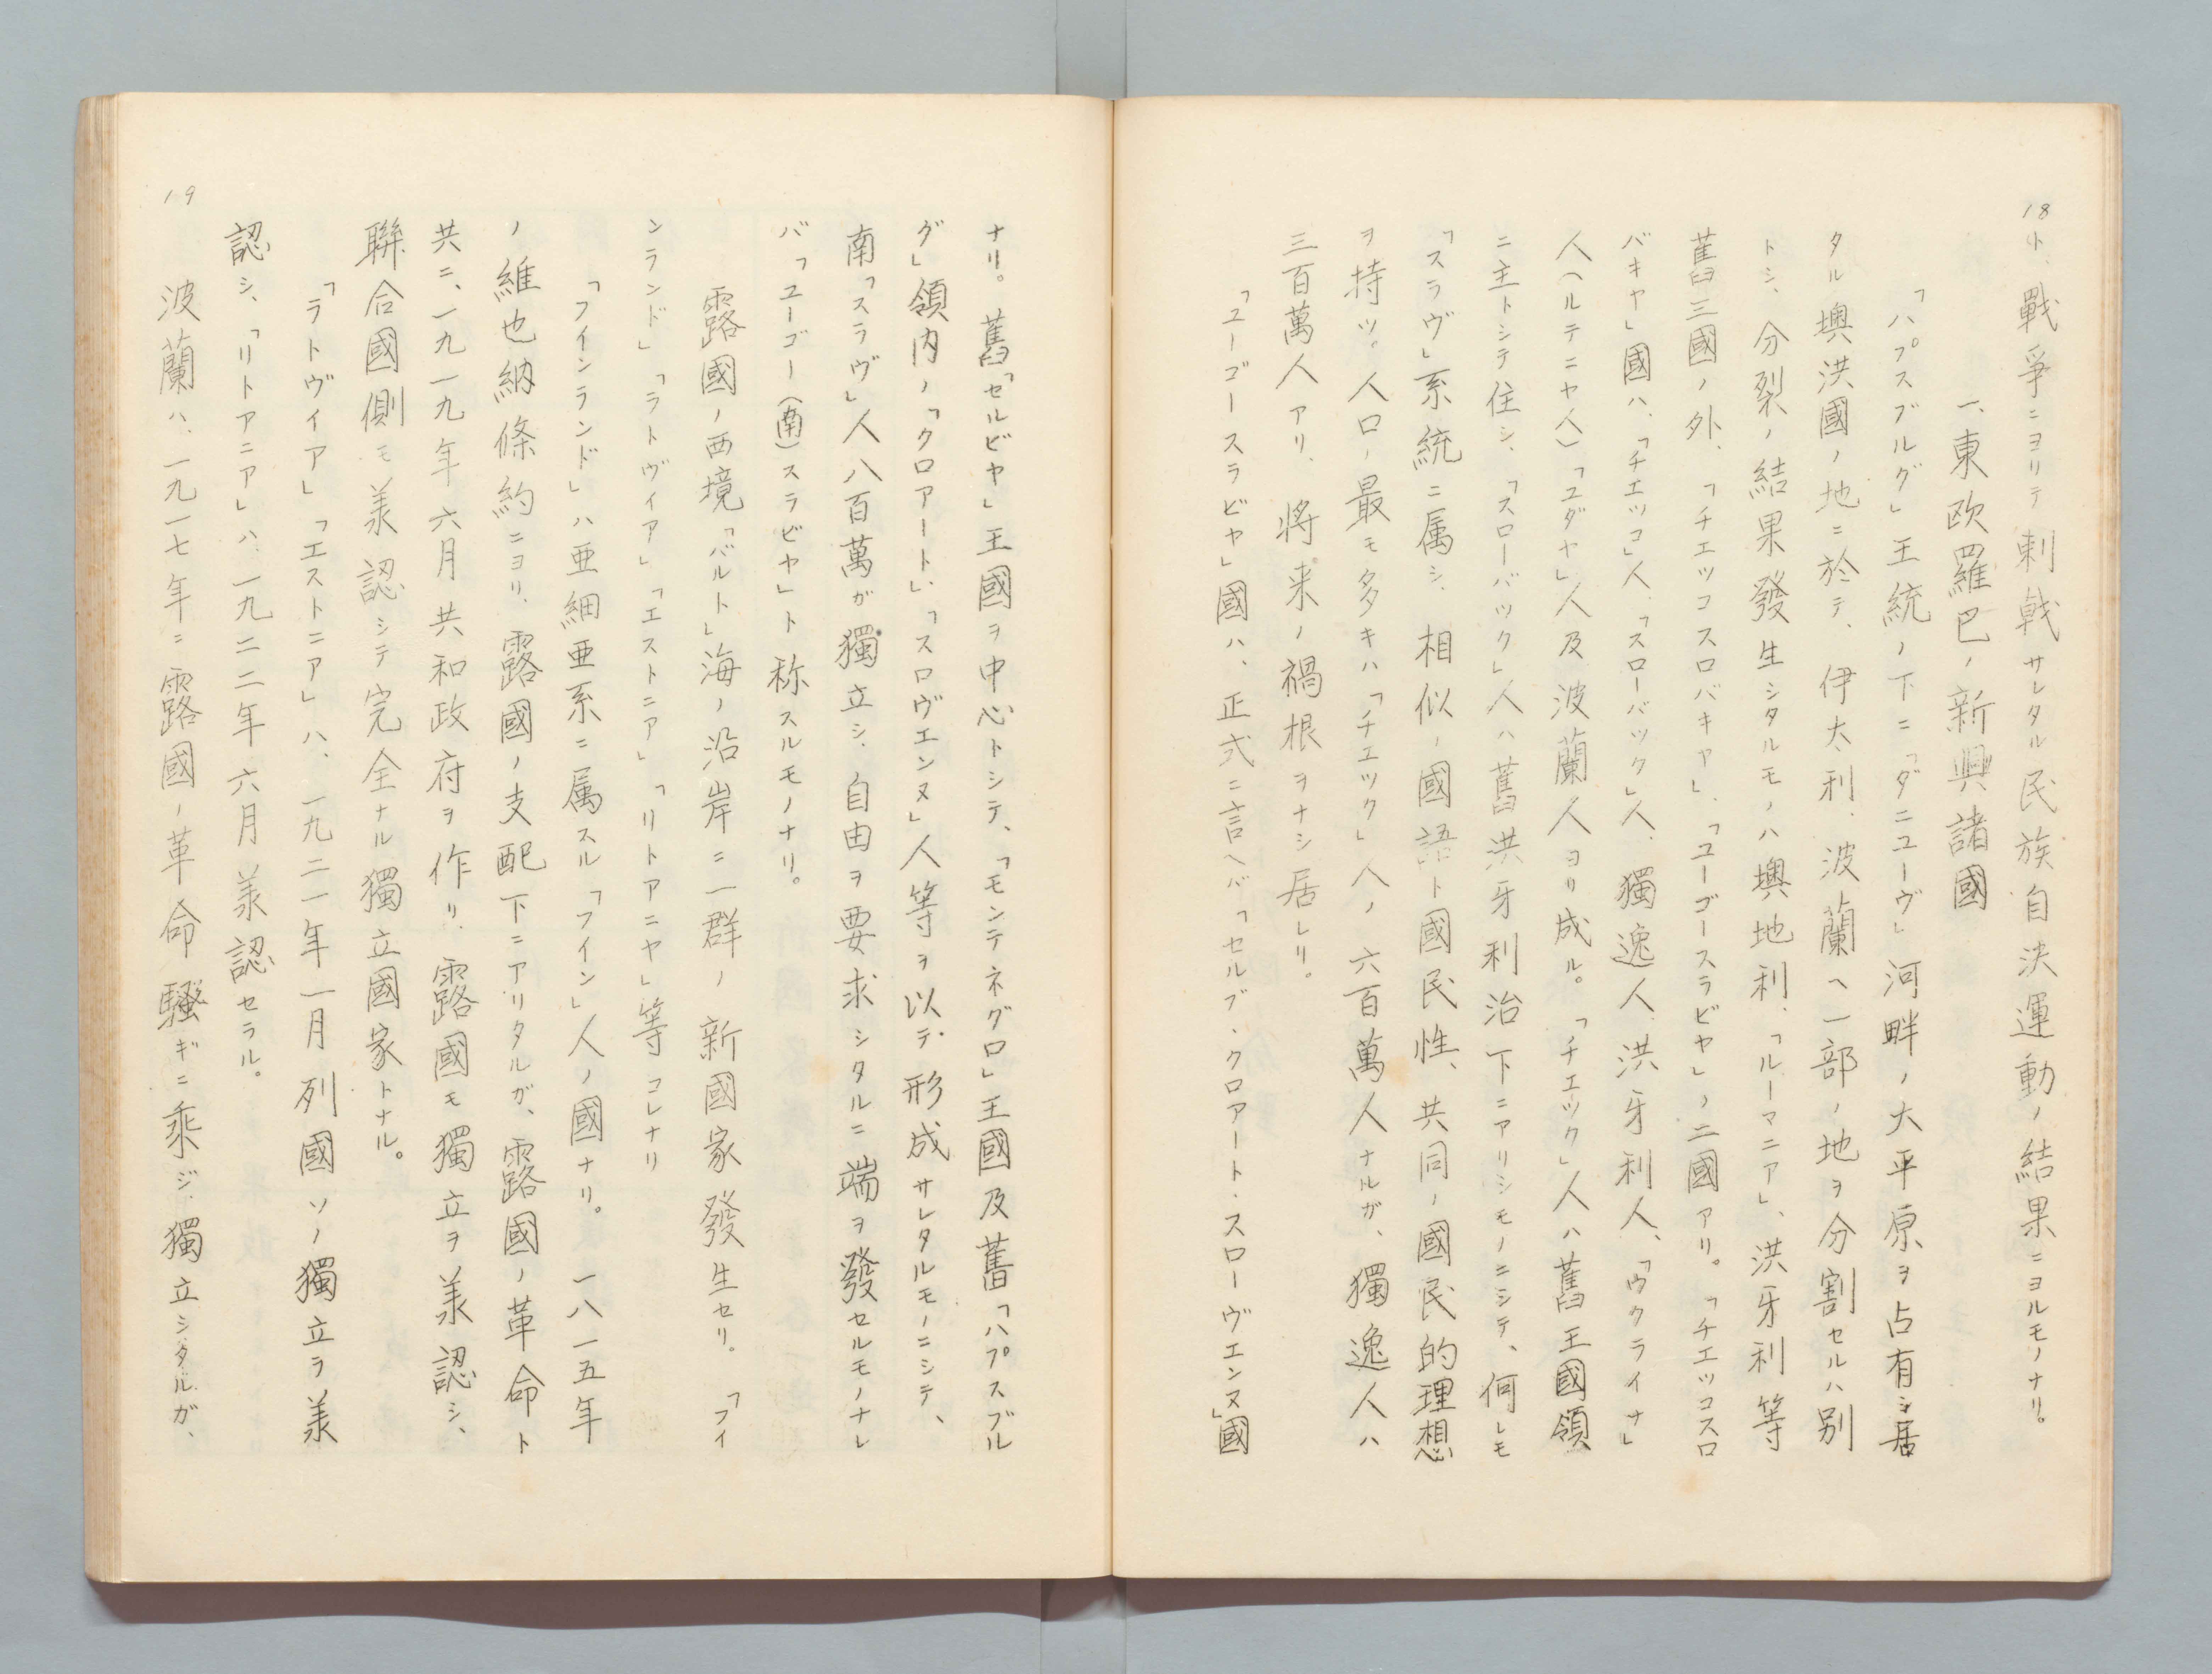 18
ト、戰爭ニヨリテ刺戟サレタル民族自決運動ノ結果ニヨルモノナリ。
一、東欧羅巴ノ新興諸國
「ハプスブルグ」王統ノ下ニ「ダニューヴ」河畔ノ大平原ヲ占有シ居
タル墺洪國ノ地ニ於テ、伊太利、波蘭ヘ一部ノ地ヲ分割セルハ別
トシ、分裂ノ結果發生シタルモノハ墺地利、「ルーマニア」、洪牙利等
舊三國ノ外、「チエッコスロバキヤ」、「ユーゴースラビヤ」ノ二國アリ。「チエッコスロ
バキヤ」國ハ、「チエッコ」人、「スローバック」人、獨逸人、洪牙利人、「ウクライナ」
人(ルテニヤ人)「ユダヤ」人及波蘭人ヨリ成ル。「チエック」人ハ舊王國領
ニ主トシテ住シ、「スローバック」人ハ舊洪牙利治下ニアリシモノニシテ、何レモ
「スラヴ」系統ニ属シ、相似ノ國語ト國民性、共同ノ國民的理想
ヲ持ツ。人口ノ最モ多キハ「チエック」人ノ六百萬人ナルガ、獨逸人ハ
三百萬人アリ、将来ノ禍根ヲナシ居レリ。
「ユーゴースラビヤ」國ハ、正式ニ言ヘバ「セルブ、クロアート、スローヴエンヌ」國
ナリ。舊「セルビヤ」王國ヲ中心トシテ、「モンテネグロ」王國及舊「ハプスブル
グ」領内ノ「クロアート」、「スロヴエンヌ」人等ヲ以テ形成サレタルモノニシテ、
南「スラヴ」人八百萬ガ獨立シ、自由ヲ要求シタルニ端ヲ發セルモノナレ
バ「ユーゴー(南)スラビヤ」ト称スルモノナリ。
露國ノ西境「バルト」海ノ沿岸ニ一群ノ新國家發生セリ。「フイ
ンランド」「ラトヴイア」「エストニア」「リトアニヤ」等コレナリ
「フインランド」ハ亜細亜系ニ属スル「フイン」人ノ國ナリ。一八一五年
ノ維也納條約ニヨリ、露國ノ支配下ニアリタルガ、露國ノ革命ト
共ニ、一九一九年六月共和政府ヲ作リ、露國モ獨立ヲ羕認シ、
聯合國側モ羕認シテ完全ナル獨立國家トナル。
「ラトヴイア」「エストニア」ハ、一九二一年一月列國ソノ獨立ヲ羕
認シ、「リトアニア」ハ、一九二二年六月羕認セラル。
波蘭ハ、一九一七年ニ露國ノ革命騒ギニ乘ジ、獨立シタルガ、
19